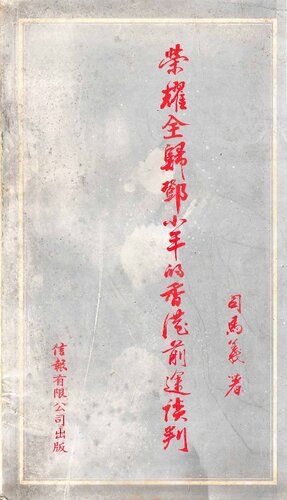 榮耀全歸鄧小平的香港前途談判
司馬義著
信報有限公司出版